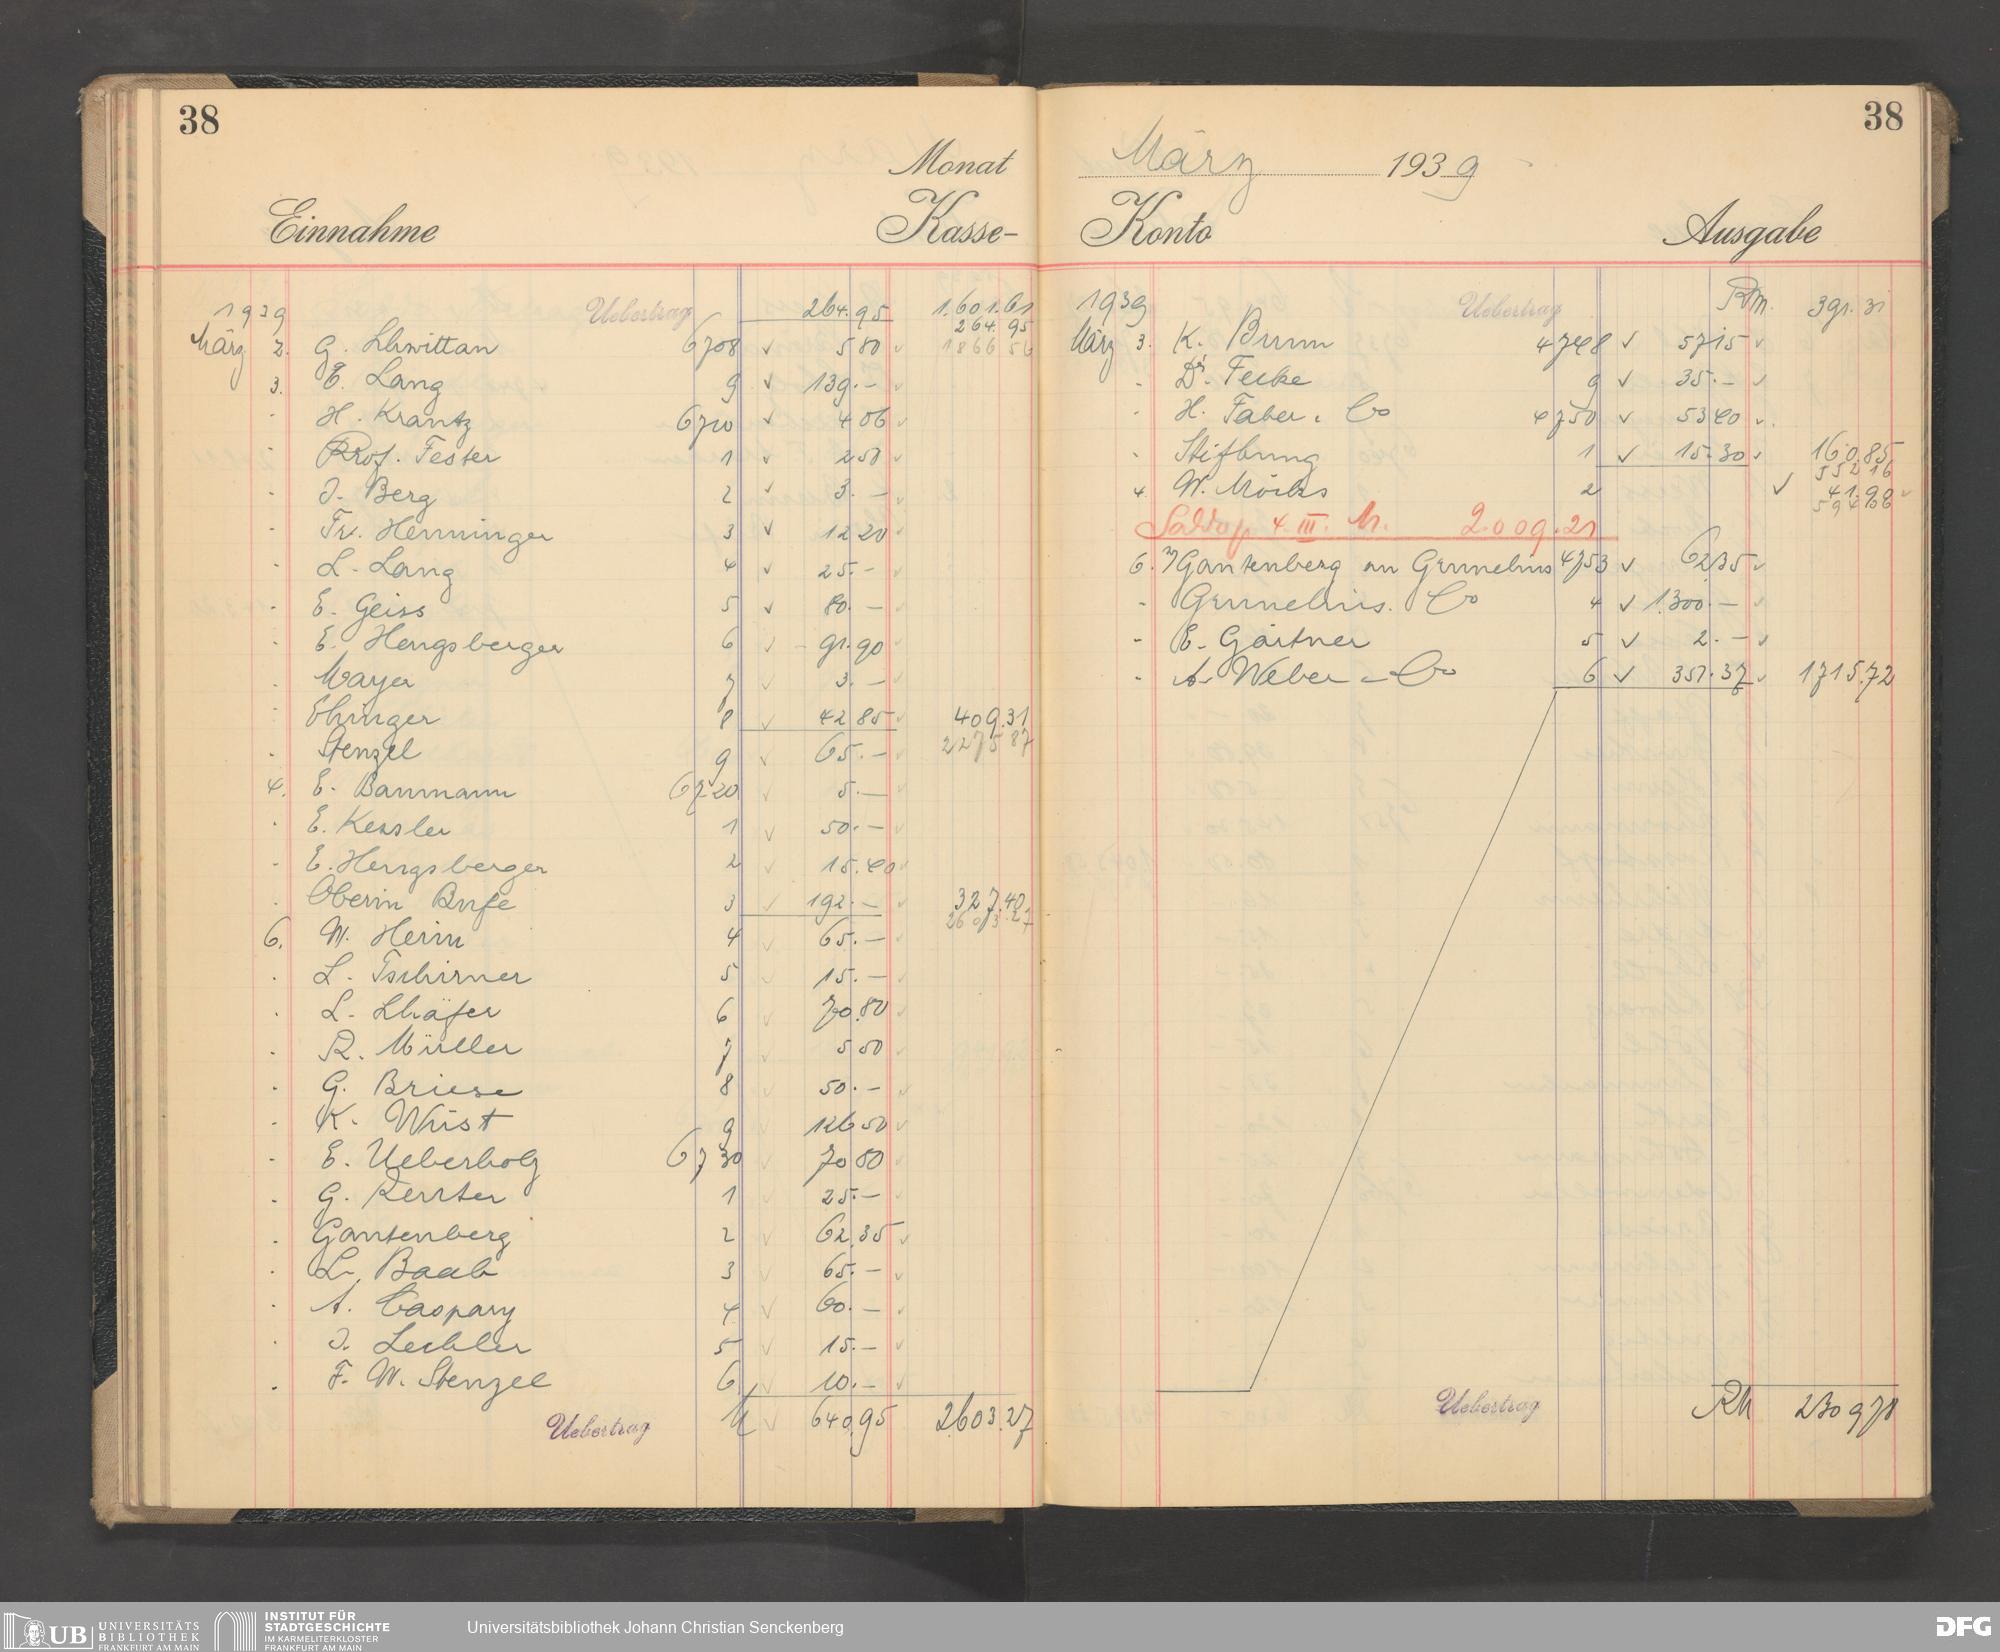 38
Monat
Einnahme Kasse-
1939 Uebertrag 264.95 1.601.61
264.95
März 2. G. Schwittan 6708 ✓ 5 80 ✓ 1866 56
3. E. Lang 9 ✓ 139.– ✓
- H. Krantz 6710 ✓ 4 06 ✓
- Prof. Fester 1 ✓ 2 50 ✓
- J. Berg 2 ✓ 3.– ✓
- Fr. Henninger 3 ✓ 12 20 ✓
- L. Lang 4 ✓ 25.– ✓
- E. Geiss 5 ✓ 80.– ✓
- E. Hengsberger 6 ✓ 91.90 ✓
- Mayer 7 ✓ 3.– ✓
- Ehinger 8 ✓ 42 85 ✓ 409.31
- Stenzel 9 ✓ 65.– ✓ 2275 87
4. E. Baumann 6720 ✓ 5.– ✓
- E. Kessler 1 ✓ 50.– ✓
- E. Hengsberger 2 ✓ 15.40 ✓
- Oberin Bufe 3 ✓ 192.– ✓ 327.40
2603.27
6. W. Henn 4 ✓ 65.– ✓
- L. Tschirner 5 ✓ 15.– ✓
- L. Schäfer 6 ✓ 70.80 ✓
- R. Müller 7 ✓ 5 50 ✓
- G. Briese 8 ✓ 50.– ✓
- K. Wüst 9 ✓ 126 50 ✓
- E. Ueberholz 6730 ✓ 70 80 ✓
- G. 1 ✓ 25.– ✓
- Gantenberg 2 ✓ 62.35 ✓
- L. Baab 3 ✓ 65.– ✓
- A. Caspary 4 ✓ 60.– ✓
- J. Lechler 5 ✓ 15.– ✓
- F. W. Stenzel 6 ✓ 10.– ✓
Uebertrag M ✓ 640.95 2603.27
38
März 1939
Konto Ausgabe
1939 Uebertrag RM. 391.31
März 3. K. Brunn 4748 ✓ 57.15 ✓
- Dr. Fecke 9 ✓ 35.– ✓
- H. Faber & Co 4750 ✓ 53 40 ✓
- Stiftung 1 ✓ 15.30 ✓ 160.85
552 16
4. W. Möcks 2 ✓ 41.90 ✓
594 06
Saldo p. 4. III. M. 2009.21
6. Gantenberg an Grunelius 4753 ✓ 62 35 ✓
- Grunelius & Co 4 ✓ 1300.– ✓
- E. Gärtner 5 ✓ 2.– ✓
- A. Weber & Co 6 ✓ 351.37 ✓ 1715.72
Uebertrag RM 2309 78
UB UNIVERSITÄTS
BIBLIOTHEK
FRANKFURT AM MAIN
INSTITUT FÜR
STADTGESCHICHTE
IM KARMELITERKLOSTER
FRANKFURT AM MAIN
Universitätsbibliothek Johann Christian Senckenberg
DFG